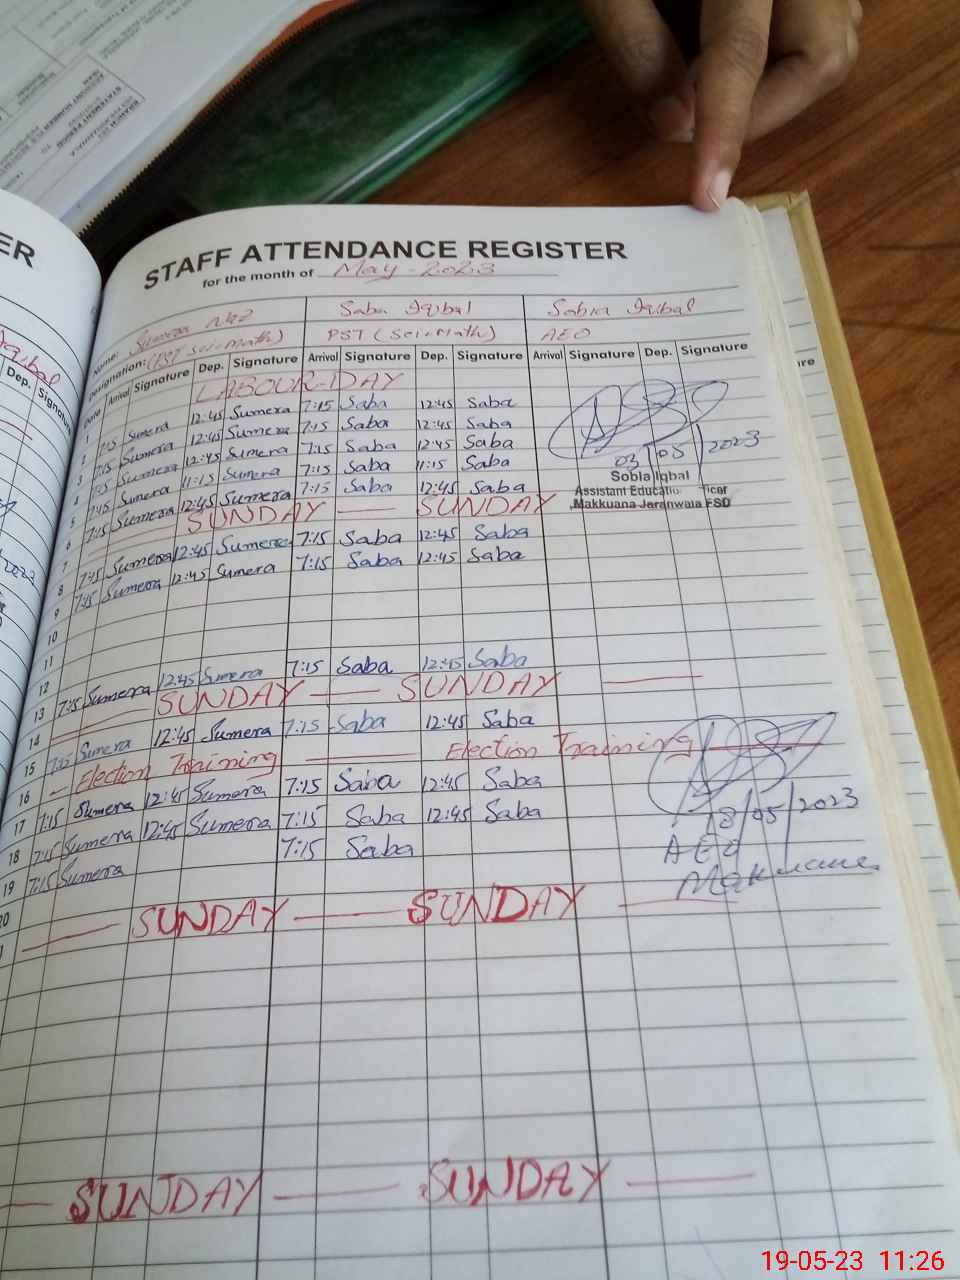 ER
STAFF ATTENDANCE REGISTER
for the month of May-2023
Name: Sumera Naz Saba Iqbal Sobia Iqbal
Designation: (PST Sci-Math) PST (Sci-Math) AEO
Date Arrival Signature Dep. Signature Arrival Signature Dep. Signature Arrival Signature Dep. Signature
Dep. Signature
1 LABOUR-DAY
2 7:15 Sumera 12:45 Sumera 7:15 Saba 12:45 Saba
3 7:15 Sumera 12:45 Sumera 7:15 Saba 12:45 Saba
4 7:15 Sumera 12:45 Sumera 7:15 Saba 12:45 Saba
5 7:15 Sumera 11:15 Sumera 7:15 Saba 11:15 Saba
6 7:15 Sumera 12:45 Sumera 7:15 Saba 12:45 Saba
7 SUNDAY — SUNDAY
03/05/2023
Sobia Iqbal
Assistant Educatio ficer
Makkuana Jaranwala FSD
8 7:15 Sumera 12:45 Sumera 7:15 Saba 12:45 Saba
9 7:15 Sumera 12:45 Sumera 7:15 Saba 12:45 Saba
10
11
12
13 7:15 Sumera 12:45 Sumera 7:15 Saba 12:45 Saba
14 SUNDAY — SUNDAY —
15 7:15 Sumera 12:45 Sumera 7:15 Saba 12:45 Saba
16 — Election Training — Election Training —
17 7:15 Sumera 12:45 Sumera 7:15 Saba 12:45 Saba
18 7:15 Sumera 12:45 Sumera 7:15 Saba 12:45 Saba
19 7:15 Sumera 7:15 Saba
18/05/2023
AEO
Makkuana
20
— SUNDAY — SUNDAY —
— SUNDAY — SUNDAY —
19-05-23 11:26